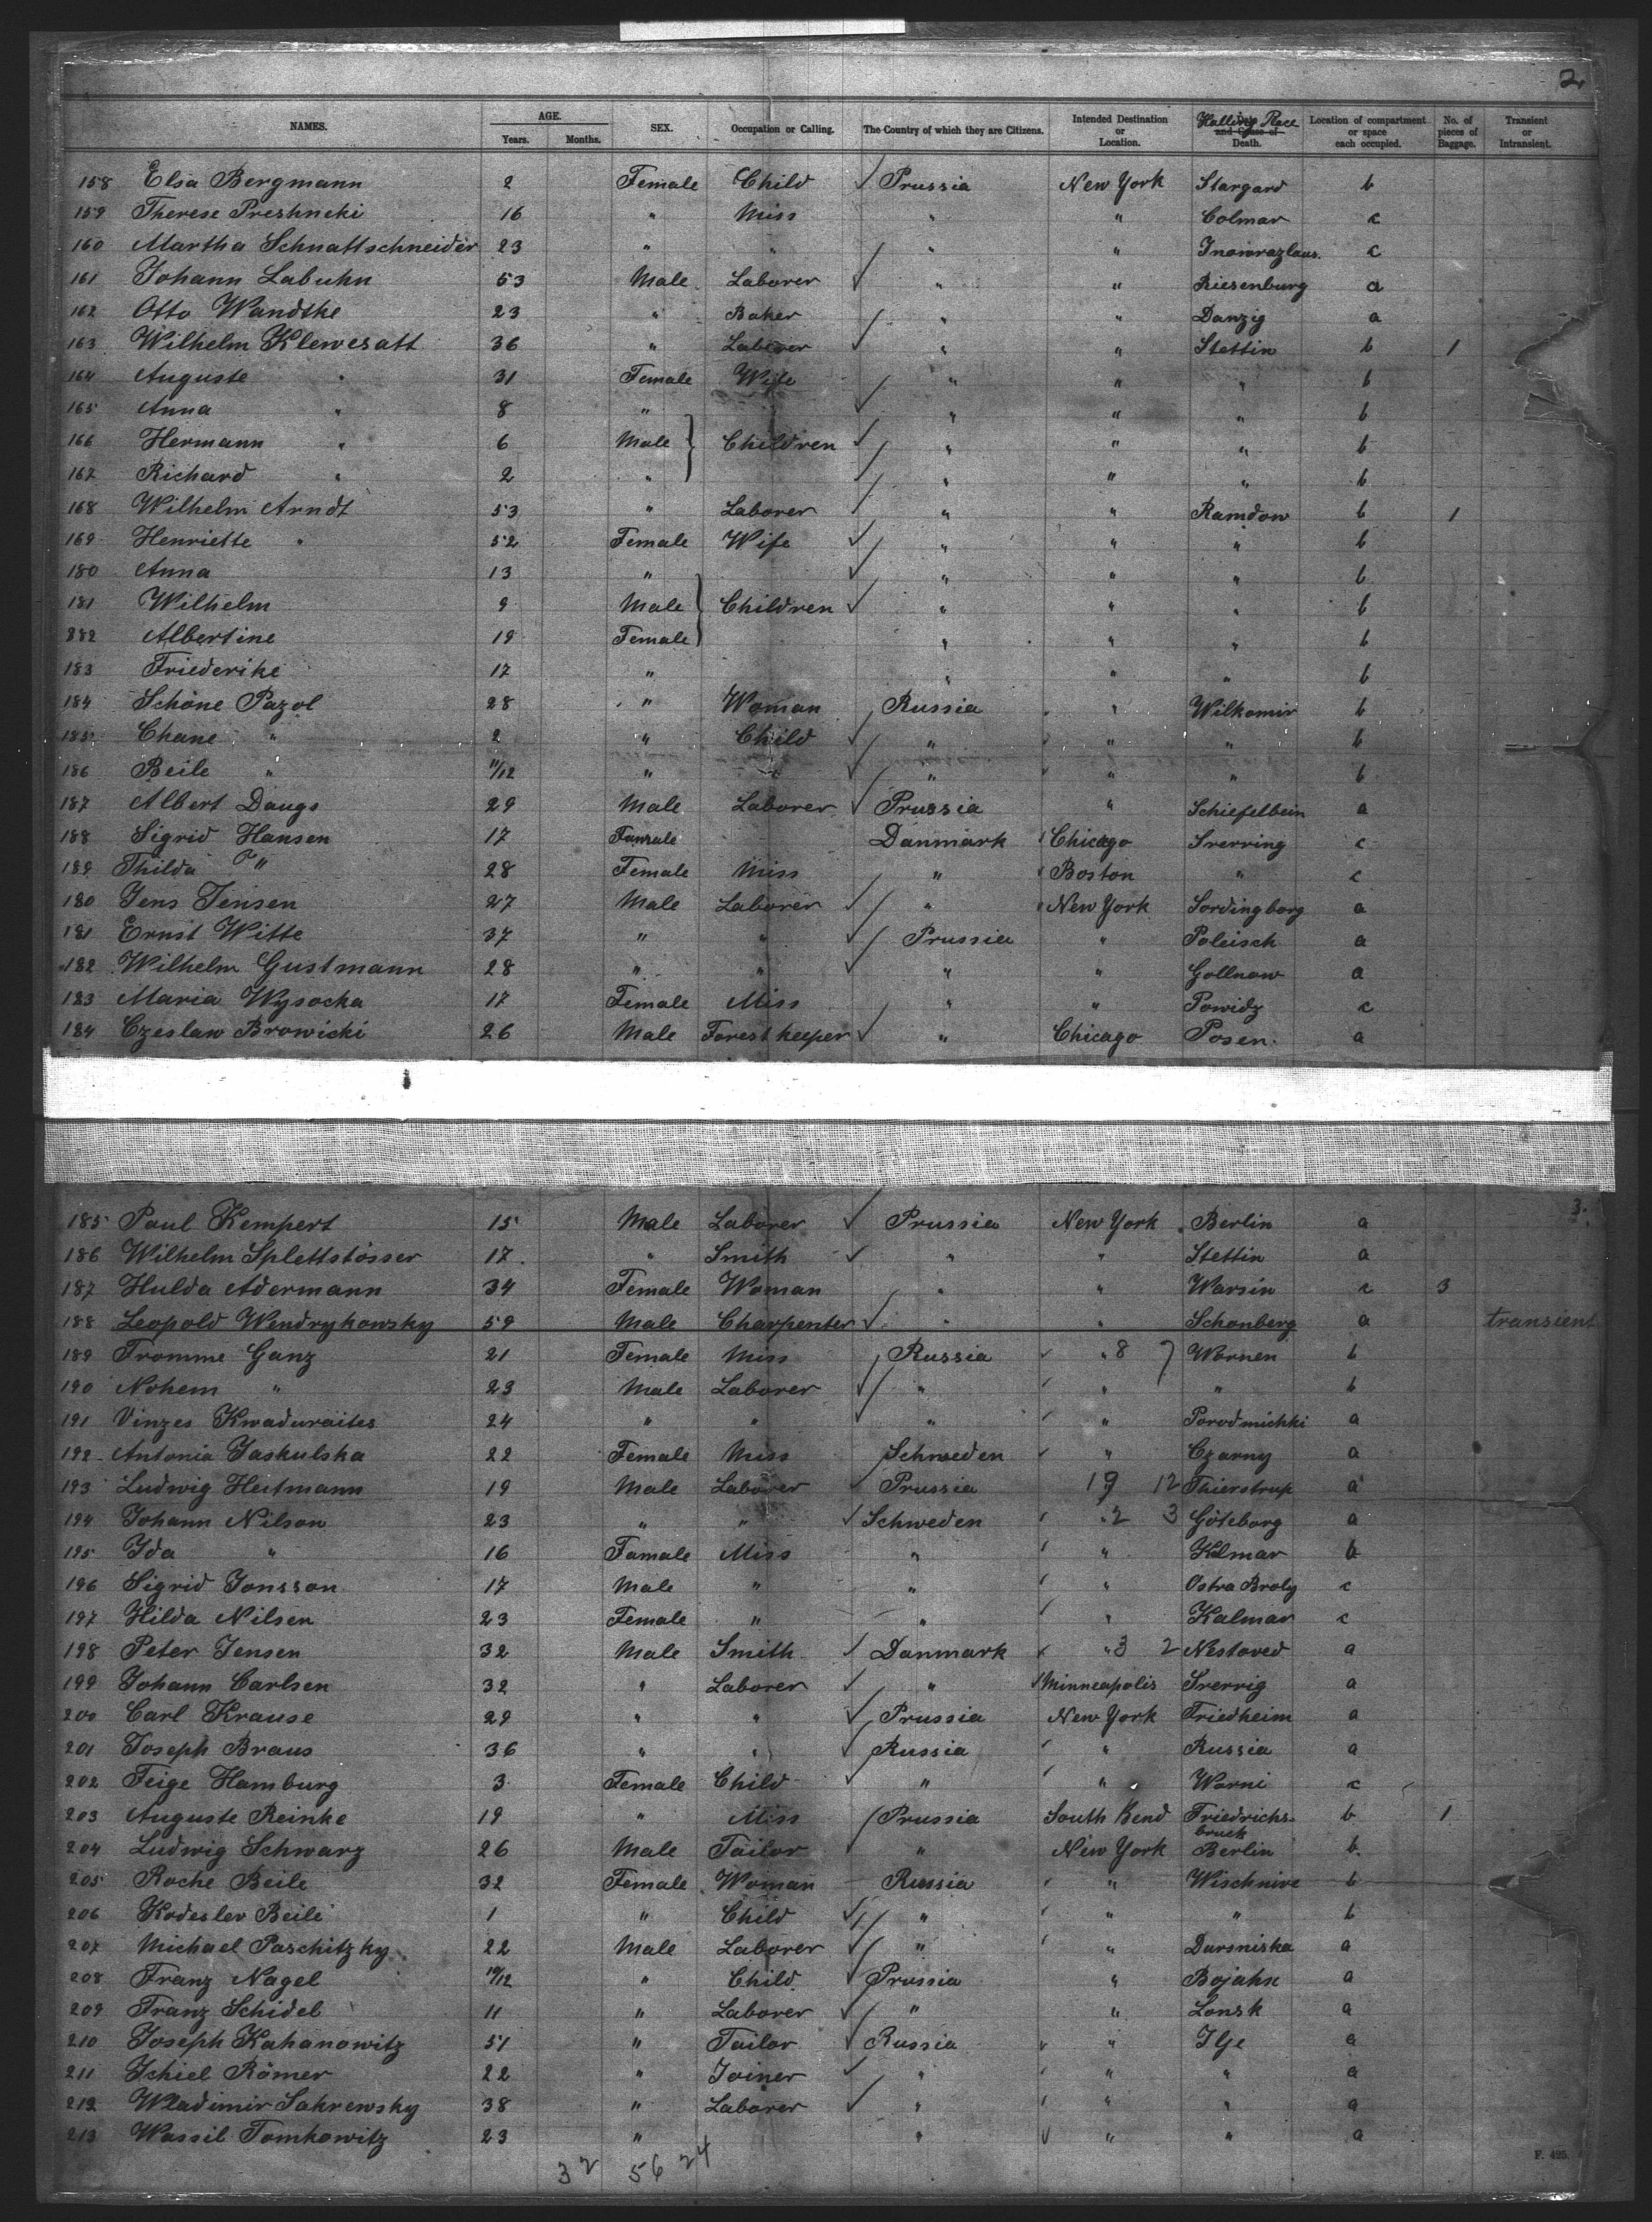 2
NAMES. AGE. Years. Months. SEX. Occupation or Calling. The Country of which they are Citizens. Intended Destination or Location. Halling Place and Cause of Death. Location of compartment or space each occupied. No. of pieces of Baggage. Transient or Intransient.
158 Elsa Bergmann 2 Female Child ✓ Prussia New York Stargard b
159 Therese Preshncki 16 " Miss " " Colmar c
160 Martha Schnattschneider 23 " " " " Inowrazlaw. c
161 Johann Labuhn 53 Male Laborer ✓ " " Riesenburg a
162 Otto Wandtke 23 " Baker " " Danzig a
163 Wilhelm Klewesatt 36 " Laborer ✓ " " Stettin b 1
164 Auguste " 31 Female Wife " " " b
165 Anna " 8 " ✓ " " " b
166 Hermann " 6 Male } Children ✓ " " " b
167 Richard " 2 " " " " b
168 Wilhelm Arndt 53 " Laborer " " Ramdow b 1
169 Henriette " 52 Female Wife ✓ " " " b
180 Anna 13 " ✓ " " " b
181 Wilhelm 9 Male } Children ✓ " " " b
882 Albertine 19 Female " " " b
183 Friederike 17 " " " " b
184 Schöne Pazol 28 " Woman Russia " Wilkomir b
185 Chane " 2 " Child ✓ " " " b
186 Beile " 11/12 " " ✓ " " " b
187 Albert Daugs 29 Male Laborer ✓ Prussia " Schiefelbein a
188 Sigrid Hansen 17 Famale Danmark Chicago Srerring c
189 Thilda " 28 Female Miss " Boston " c
180 Jens Jensen 27 Male Laborer ✓ " New York Sordingborg a
181 Ernst Witte 37 " " ✓ Prussia " Poleisch a
182 Wilhelm Gustmann 28 " " ✓ " " Gollnow a
183 Maria Wysocka 17 Female Miss " " Powidz c
184 Czeslaw Browicki 26 Male Forest keeper ✓ " Chicago Posen. a
3.
185 Paul Kempert 15 Male Laborer ✓ Prussia New York Berlin a
186 Wilhelm Splettstösser 17 " Smith ✓ " " Stettin a
187 Hulda Adermann 34 Female Woman " " Warsin c 3
188 Leopold Wendrykowsky 59 Male Charpenter ✓ " " Schönberg a transient
189 Fromme Ganz 21 Female Miss Russia " 8 7 Wornen b
190 Nohem " 23 Male Laborer ✓ " " " b
191 Vinzes Kwaduraites 24 " " ✓ " " Porodmichki a
192 Antonia Jaskulska 22 Female Miss Schweden " Czarny a
193 Ludwig Heitmann 19 Male Laborer ✓ Prussia 19 12 Thierstrup a
194 Johann Nilson 23 " " ✓ Schweden " 2 3 Göteborg a
195 Ida " 16 Famale Miss " " Kalmar b
196 Sigrid Jonsson 17 Male " " " Ostra Broly c
197 Hilda Nilsen 23 Female " " " Kalmar c
198 Peter Jensen 32 Male Smith ✓ Danmark " 3 2 Nestoved a
199 Johann Carlsen 32 " Laborer ✓ " Minneapolis Srerrig a
200 Carl Krause 29 " " ✓ Prussia New York Friedheim a
201 Joseph Braus 36 " " ✓ Russia " Russia a
202 Feige Hamburg 3 Female Child ✓ " " Worni c
203 Auguste Reinke 19 " Miss Prussia South Bend Friedrichs- b 1
bruck
204 Ludwig Schwarz 26 Male Tailor ✓ " New York Berlin b
205 Roche Beile 32 Female Woman Russia " Wischnive b
206 Krdesler Beile 1 " Child ✓ " " " b
207 Michael Paschitzky 22 Male Laborer ✓ " " Dursniska a
208 Franz Nagel 10/12 " Child ✓ Prussia " Bojahn a
209 Franz Schidel 11 " Laborer ✓ " " Lonsk a
210 Joseph Kahanowitz 51 " Tailor ✓ Russia " Ilje a
211 Ichiel Römer 22 " Joiner ✓ " " " a
212 Wladimir Sahrewsky 38 " Laborer ✓ " " " a
213 Wassil Tomkowitz 23 " " " " a
32 56 24
F. 425.